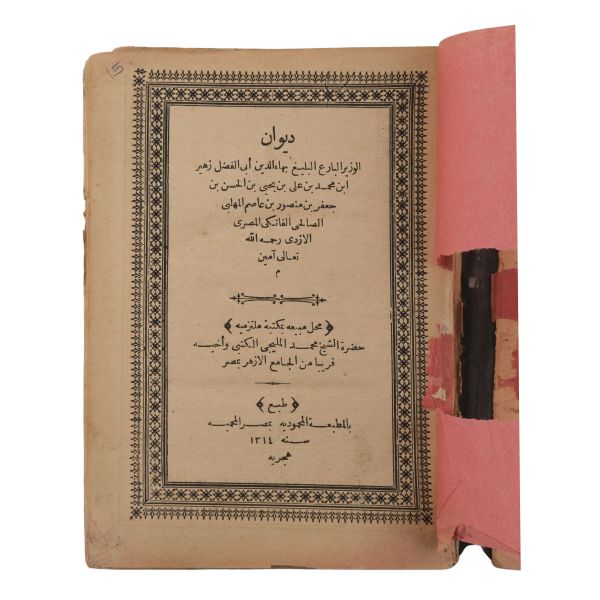 5
ديوان
الوزير البارع البليغ بهاء الدين أبى الفضل زهير
ابن محمد بن على بن يحيى بن الحسن بن
جعفر بن منصور بن عاصم المهلبى
الصالحى الفاتكى المصرى
الازدى رحمه الله
تعالى آمين
م
﴿ محل مبيعه بمكتبة ملتزميه ﴾
حضرة الشيخ محمد المليجى الكتبى وأخيه
قريبا من الجامع الازهر بمصر
﴿ طبع ﴾
بالمطبعة المحموديه بمصر المحميه
سنه ١٣١٤
هجريه